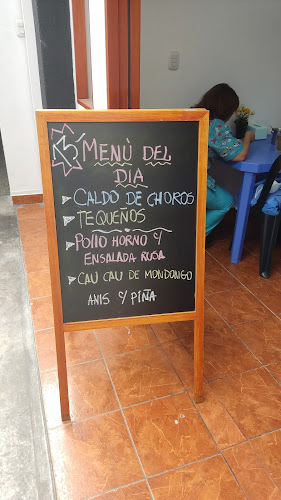 K3
MENÙ DEL
DIA
CALDO DE CHOROS
TEQUEÑOS
POllO HORNO C/
ENSALADA RUSA
CAÚ CAU DE MONDONGO
ANIS C/ PIÑA